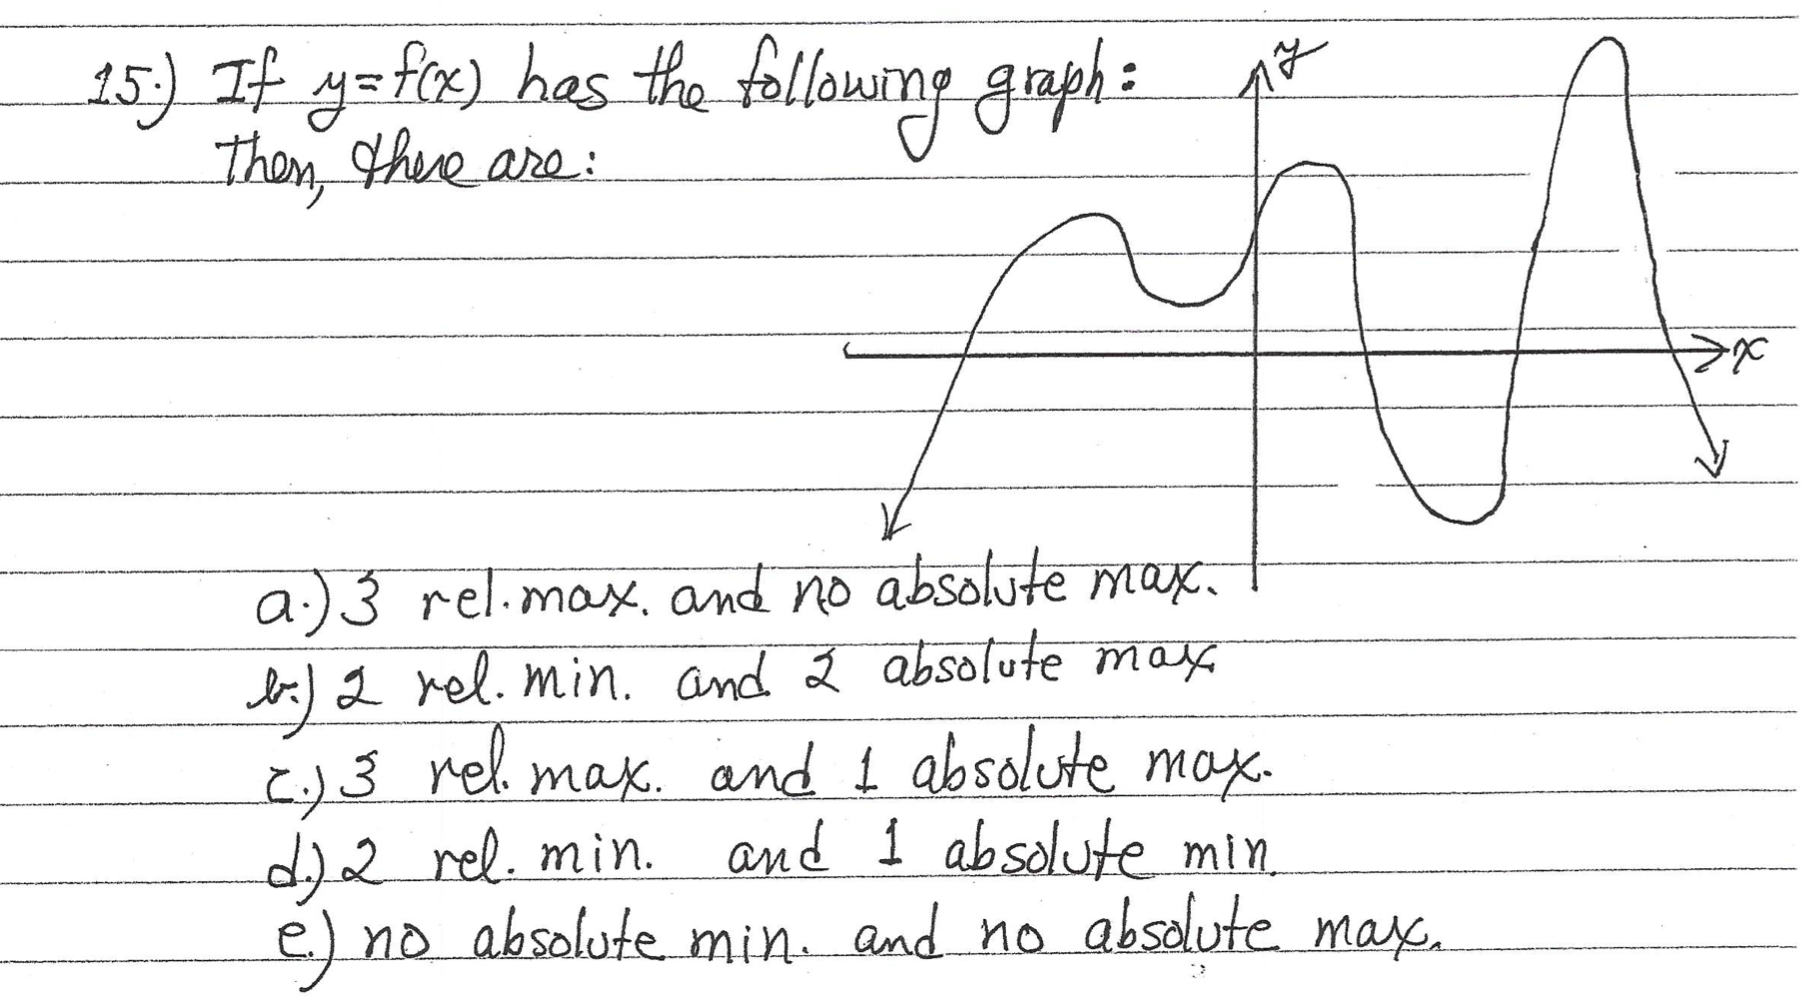 15.) If y=f(x) has the following graph:
Then, there are:
y
x
a.) 3 rel. max. and no absolute max.
b.) 2 rel. min. and 2 absolute max
c.) 3 rel. max. and 1 absolute max.
d.) 2 rel. min. and 1 absolute min.
e.) no absolute min. and no absolute max.